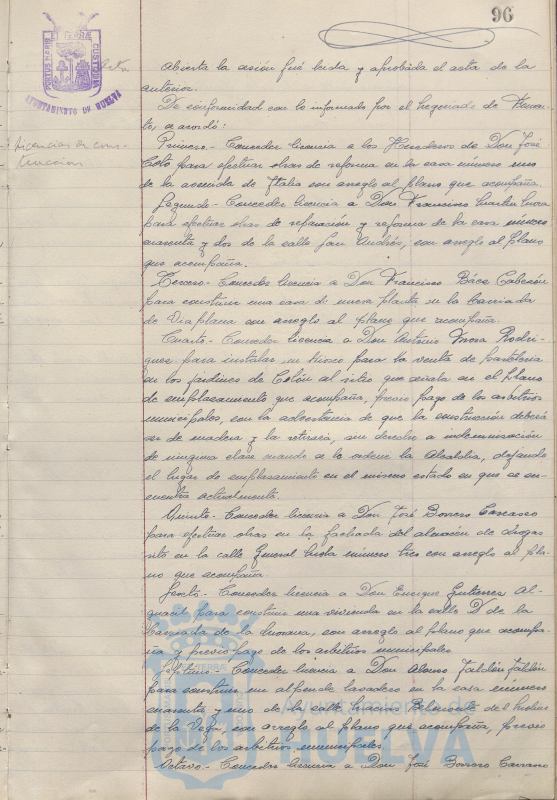 96
PORTUS MARIS ET TERRÆ CUSTODIA
AYUNTAMIENTO DE HUELVA
Licencias de cons-
trucción
Abierta la sesión fué leida y aprobada el acta de la
anterior.
De conformidad con lo informado por el Negociado de Fomen-
to, se acordó:
Primero.- Conceder licencia a los Herederos de Don José
Coto para efectuar obras de reforma en la casa número uno
de la avenida de Italia con arreglo al plano que acompaña.
Segundo.- Conceder licencia a Don Francisco Martín
para efectuar obras de reparación y reforma de la casa número
cuarenta y dos de la calle San Andrés, con arreglo al plano
que acompaña.
Tercero.- Conceder licencia a Don Francisco Báez Cabezón
para construir una casa de nueva planta en la barriada
de Viaplana con arreglo al plano que acompaña.
Cuarto.- Conceder licencia a Don Antonio Mora Rodrí-
guez para instalar un kiosco para la venta de pastelería
en los jardines de Colón al sitio que señala en el plano
de emplazamiento que acompaña, previo pago de los arbitrios
municipales, con la advertencia de que la construcción deberá
ser de madera y la retirará, sin derecho a indemnización
de ninguna clase cuando se lo ordene la Alcaldía, dejando
el lugar de emplazamiento en el mismo estado en que se en-
cuentra actualmente.
Quinto.- Conceder licencia a Don José Borrero Carrasco
para efectuar obras en la fachada del almacén de drogas
sito en la calle General Mola número tres con arreglo al pla-
no que acompaña.
Sexto.- Conceder licencia a Don Enrique Gutierrez Al-
guacil para construir una vivienda en la calle D de la
barriada de la Navana, con arreglo al plano que acompa-
ña y previo pago de los arbitrios municipales.
Séptimo.- Conceder licencia a Don Alonso Zaldón Zaldón
para construir un alpende lavadero en la casa número
cuarenta y uno de la calle
de la Vega, con arreglo al plano que acompaña, previo
pago de los arbitrios municipales.
Octavo.- Conceder licencia a Don José Borrero Carrasco
Ayuntamiento de
HUELVA